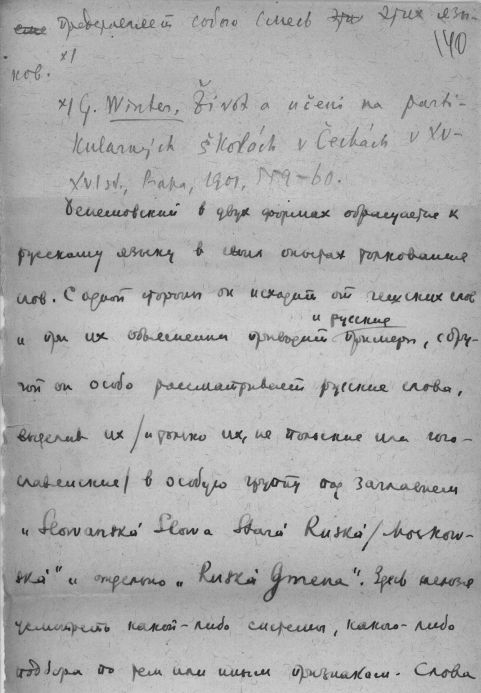 представляет собою смесь этих язы-
140
ков. x/
x/ G. Winter, Život a učení na parti-
kulárných školách v Čechách v XV-
XVI st., Praha, 1901, 559-60.
Бенешовский в двух формах обращается к
русскому языку в своих опытах толкования
слов. С одной стороны он исходит от чешских слов
и русские
и при их объяснении приводит примеры, с дру-
гой он особо рассматривает русские слова,
выделив их /и только их, не польские или юго-
славянские/ в особую группу под заглавием
"Slowanská Slowa Stará Ruská/Moskow-
ská" и отдельно "Ruská Gmena". Здесь нельзя
усмотреть какой-либо системы, какого-либо
подбора по тем или иным признакам. Слова